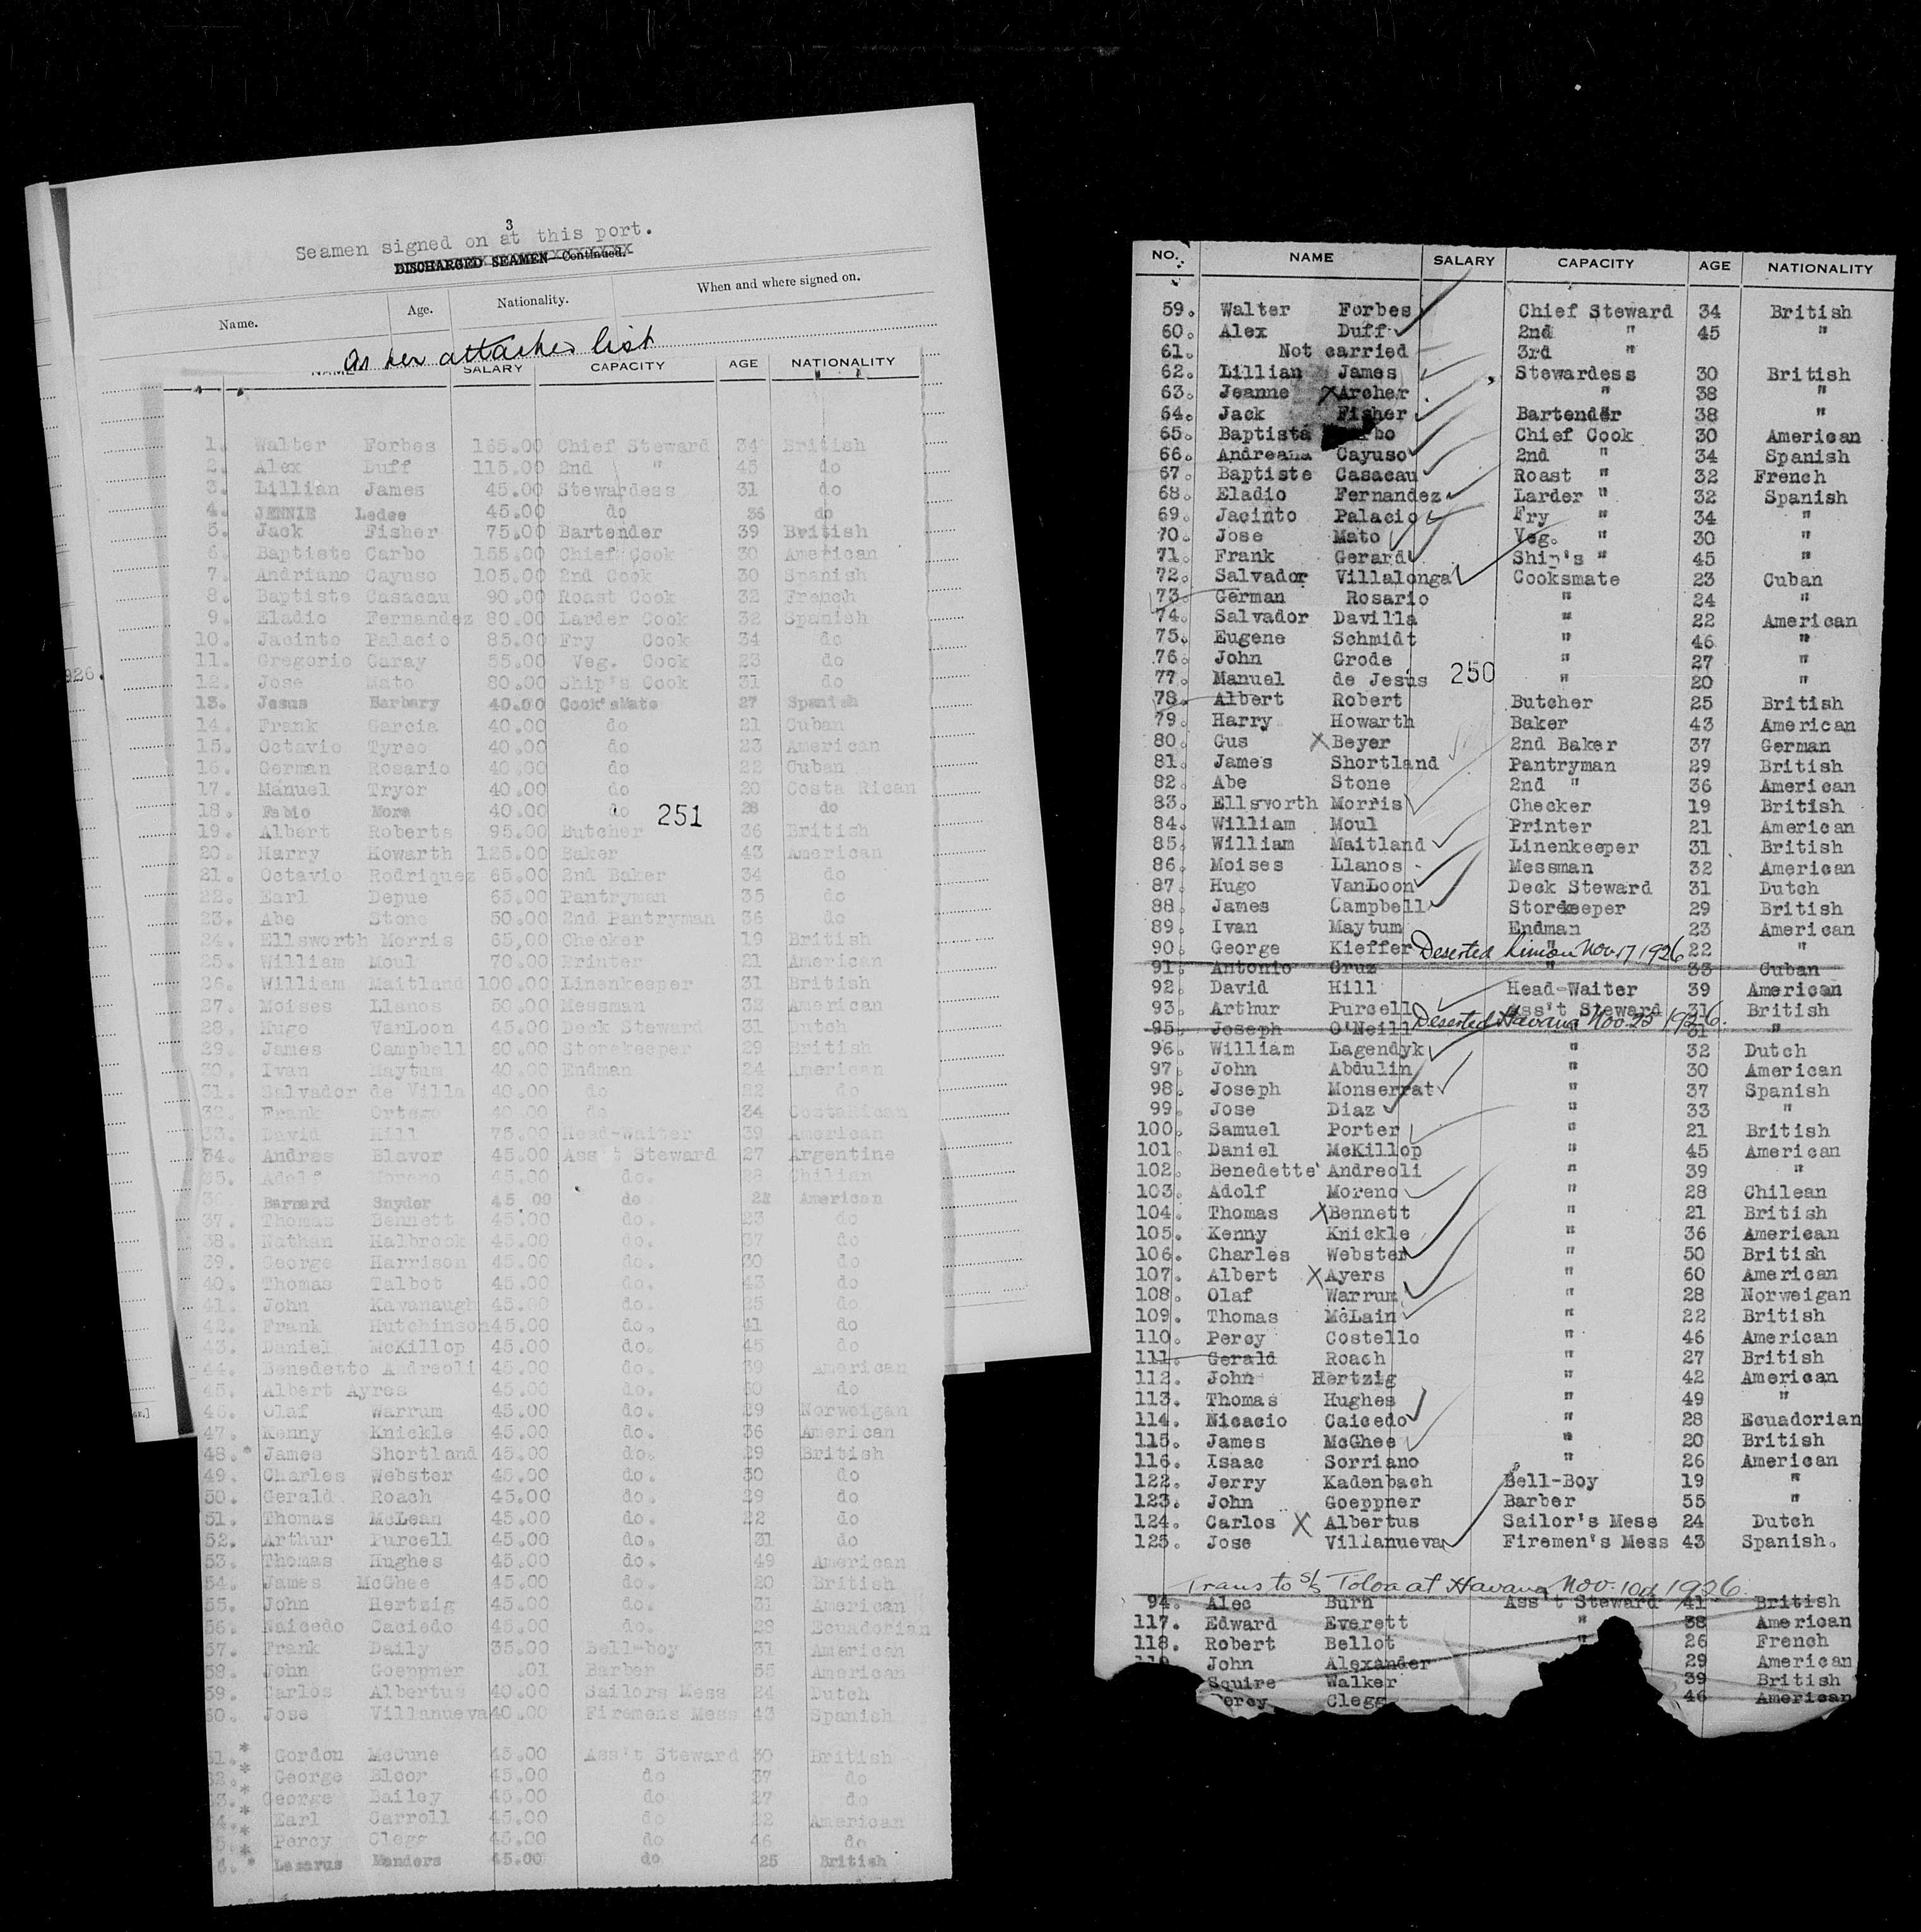 3
Seamen signed on at this port.
DISCHARGED SEAMEN—Continued.
Name. Age. Nationality. When and where signed on.
As per attached list
NAME SALARY CAPACITY AGE NATIONALITY
1. Walter Forbes 165.00 Chief Steward 34 British
2. Alex Duff 115.00 2nd " 45 do
3. Lillian James 45.00 Stewardess 31 do
4. JENNIE Ledee 45.00 do 36 do
5. Jack Fisher 75.00 Bartender 39 British
6. Baptiste Carbo 155.00 Chief Cook 30 American
7. Andriano Cayuso 105.00 2nd Cook 30 Spanish
8. Baptiste Casacau 90.00 Roast Cook 32 French
9. Eladio Fernandez 80.00 Larder Cook 32 Spanish
10. Jacinto Palacio 85.00 Fry Cook 34 do
11. Gregorio Garay 55.00 Veg. Cook 23 do
926.
12. Jose Mato 80.00 Ship's Cook 31 do
13. Jesus Barbary 40.00 Cook'sMate 27 Spanish
14. Frank Garcia 40.00 do 21 Cuban
15. Octavio Tyreo 40.00 do 23 American
16. German Rosario 40.00 do 22 Cuban
17. Manuel Tryor 40.00 do 20 Costa Rican
18. Fabio Mora 40.00 do 28 do
251
19. Albert Roberts 95.00 Butcher 36 British
20. Harry Howarth 125.00 Baker 43 American
21. Octavio Rodriquez 65.00 2nd Baker 34 do
22. Earl Depue 65.00 Pantryman 35 do
23. Abe Stone 50.00 2nd Pantryman 36 do
24. Ellsworth Morris 65,00 Checker 19 British
25. William Moul 70.00 Printer 21 American
26. William Maitland 100.00 Linenkeeper 31 British
27. Moises Llanos 50.00 Messman 32 American
28. Hugo VanLoon 45.00 Deck Steward 31 Dutch
29. James Campbell 60.00 Storekeeper 29 British
30. Ivan Maytum 40.00 Endman 24 American
31. Salvador de Villa 40.00 do 22 do
32. Frank Ortego 40.00 do 34 CostaRican
33. David Hill 75.00 Head-Waiter 39 American
34. Andres Blavor 45.00 Ass't Steward 27 Argentine
35. Adolf Moreno 45.00 do. 28 Chilian
36 Barnard Snyder 45.00 do 22 American
37. Thomas Bennett 45.00 do. 23 do
38. Nathan Halbrook 45.00 do. 37 do
39. George Harrison 45.00 do. 30 do
40. Thomas Talbot 45.00 do. 43 do
41. John Kavanaugh 45.00 do. 25 do
42. Frank Hutchinson 45.00 do. 41 do
43. Daniel McKillop 45.00 do. 45 do
44. Benedetto Andreoli 45.00 do. 39 American
45. Albert Ayres 45.00 do. 60 do
46. Olaf Warrum 45.00 do. 29 Norweigan
47. Kenny Knickle 45.00 do. 36 American
48. * James Shortland 45.00 do. 29 British
49. Charles Webster 45.00 do. 50 do
50. Gerald Roach 45.00 do. 29 do
51. Thomas McLean 45.00 do. 22 do
52. Arthur Purcell 45.00 do. 31 do
53. Thomas Hughes 45.00 do. 49 American
54. James McGhee 45.00 do. 20 British
55. John Hertzig 45.00 do. 31 American
56. Naicedo Caciedo 45.00 do. 28 Ecuadorian
57. Frank Daily 35.00 Bell-boy 31 American
58. John Goeppner .01 Barber 55 American
59. Carlos Albertus 40.00 Sailors Mess 24 Dutch
60. Jose Villanueva 40.00 Firemens Mess 43 Spanish
61. * Gordon McCune 45.00 Ass't Steward 30 British
62. * George Bloor 45.00 do 37 do
63. * George Bailey 45.00 do 27 do
64. * Earl Carroll 45.00 do 22 American
65. * Percy Clegg 45.00 do 46 do
6. * Lazarus Manders 45.00 do 25 British
NO. NAME SALARY CAPACITY AGE NATIONALITY
59. Walter Forbes Chief Steward 34 British
60. Alex Duff 2nd " 45 "
61. Not carried 3rd "
62. Lillian James Stewardess 30 British
63. Jeanne X Archer " 38 "
64. Jack Fisher Bartender 38 "
65. Baptista Bartender Chief Cook 30 American
66. Andreana Cayuso 2nd " 34 Spanish
67. Baptiste Casacau Roast " 32 French
68. Eladio Fernandez Larder " 32 Spanish
69. Jacinto Palacio Fry " 34 "
70. Jose Mato Veg. " 30 "
71. Frank Gerard Ship's " 45 "
72. Salvador Villalonga Cooksmate 23 Cuban
73. German Rosario " 24 "
74. Salvador Davilla " 22 American
75. Eugene Schmidt " 46 "
76. John Grode " 27 "
77. Manuel de Jesus 250 " 20 "
78. Albert Robert Butcher 25 British
79. Harry Howarth Baker 43 American
80. Gus X Beyer 2nd Baker 37 German
81. James Shortland Pantryman 29 British
82. Abe Stone 2nd " 36 American
83. Ellsworth Morris Checker 19 British
84. William Moul Printer 21 American
85. William Maitland Linenkeeper 31 British
86. Moises Llanos Messman 32 American
87. Hugo VanLoon Deck Steward 31 Dutch
88. James Campbell Storekeeper 29 British
89. Ivan Maytum Endman 23 American
90. George Kieffer " 22 "
Deserted Limon Nov. 17 1926
91. Antonio Cruz " 33 Cuban
92. David Hill Head-Waiter 39 American
93. Arthur Purcell Ass't Steward 31 British
Deserted Havana Nov. 25 1926.
95. Joseph O'Neill " 31 "
96. William Lagendyk " 32 Dutch
97. John Abdulin " 30 American
98. Joseph Monserrat " 37 Spanish
99. Jose Diaz " 33 "
100. Samuel Porter " 21 British
101. Daniel McKillop " 45 American
102. Benedette' Andreoli " 39 "
103. Adolf Moreno " 28 Chilean
104. Thomas X Bennett " 21 British
105. Kenny Knickle " 36 American
106. Charles Webster " 50 British
107. Albert X Ayers " 60 American
108. Olaf Warrum " 28 Norweigan
109. Thomas McLain " 22 British
110. Percy Costello " 46 American
111. Gerald Roach " 27 British
112. John Hertzig " 42 American
113. Thomas Hughes " 49 "
114. Nicacio Caicedo " 28 Ecuadorian
115. James McGhee " 20 British
116. Isaac Sorriano " 26 American
122. Jerry Kadenbach Bell-Boy 19 "
123. John Goeppner Barber 55 "
124. Carlos X Albertus Sailor's Mess 24 Dutch
125. Jose Villanueva Firemen's Mess 43 Spanish.
Trans to S/S Toloa at Havana Nov. 10th 1926.
94. Alec Burn Ass't Steward 41 British
117. Edward Everett " 38 American
118. Robert Bellot " 26 French
John Alexander 29 American
Squire Walker 39 British
Clegg 46 American